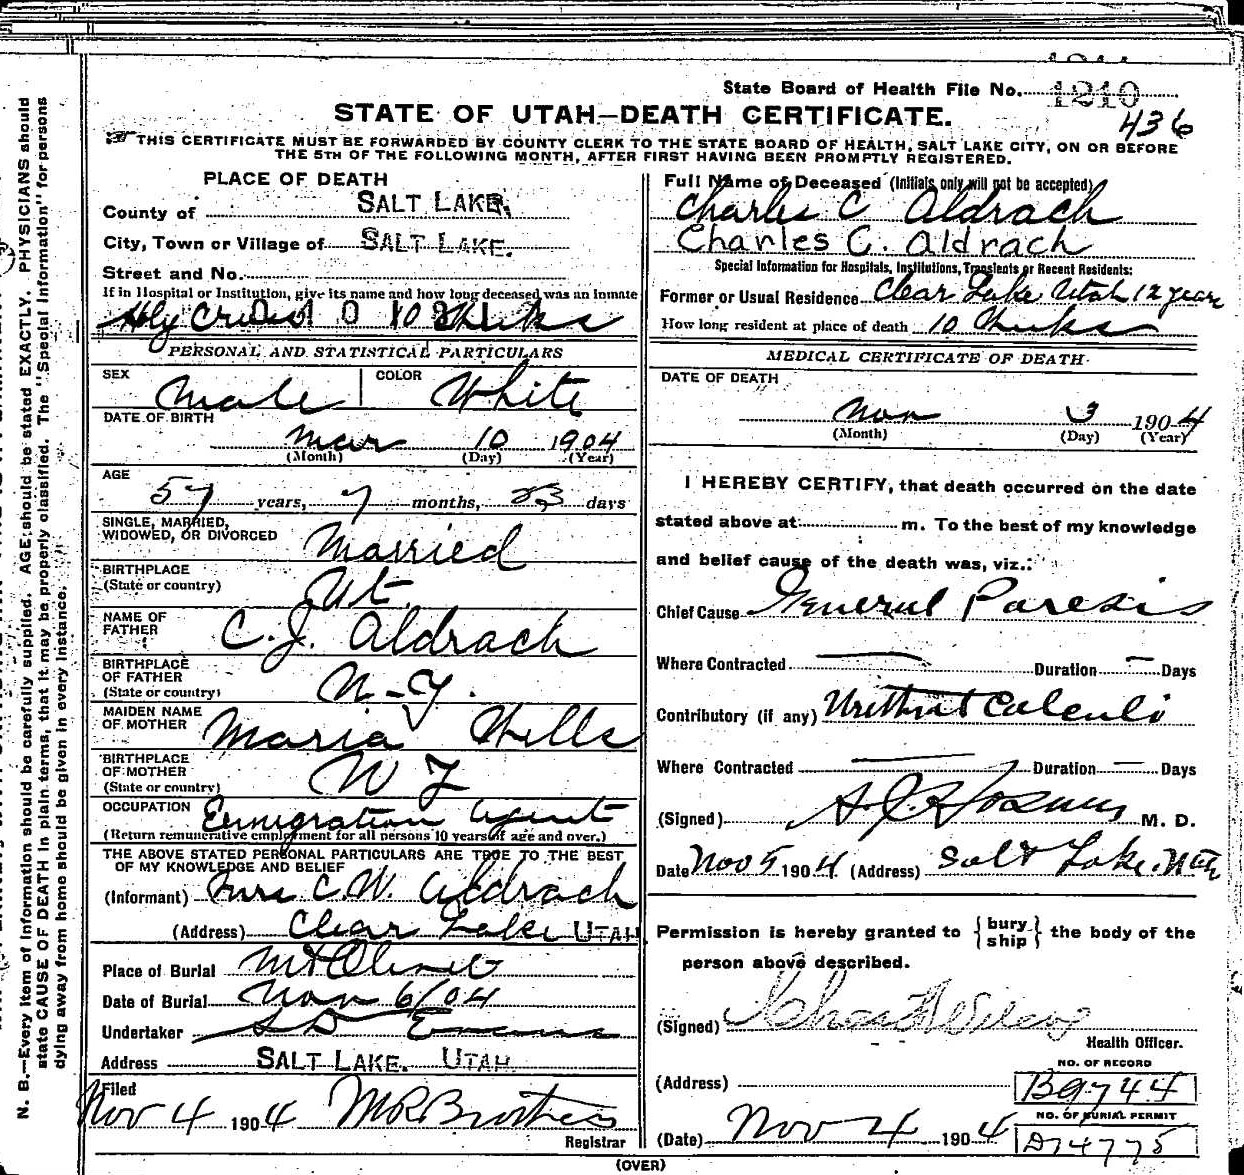 State Board of Health File No. 1210
436
STATE OF UTAH—DEATH CERTIFICATE.
THIS CERTIFICATE MUST BE FORWARDED BY COUNTY CLERK TO THE STATE BOARD OF HEALTH, SALT LAKE CITY, ON OR BEFORE
THE 5TH OF THE FOLLOWING MONTH, AFTER FIRST HAVING BEEN PROMPTLY REGISTERED.
PLACE OF DEATH
County of SALT LAKE.
City, Town or Village of SALT LAKE.
Street and No.
If in Hospital or Institution, give its name and how long deceased was an inmate
Holy Cross 10 Weeks
PERSONAL AND STATISTICAL PARTICULARS
SEX Male COLOR White
DATE OF BIRTH
Mar 10 1904
(Month) (Day) (Year)
AGE
57 years, 7 months, 23 days
SINGLE, MARRIED,
WIDOWED, OR DIVORCED Married
BIRTHPLACE
(State or country) Ut.
NAME OF
FATHER C. J. Aldrach
BIRTHPLACE
OF FATHER
(State or country) N-Y.
MAIDEN NAME
OF MOTHER Maria Wells
BIRTHPLACE
OF MOTHER
(State or country) N Y
OCCUPATION Emmigration Agent
(Return remunerative employment for all persons 10 years of age and over.)
THE ABOVE STATED PERSONAL PARTICULARS ARE TRUE TO THE BEST
OF MY KNOWLEDGE AND BELIEF
(Informant) Mrs C.W. Aldrach
(Address) Clear Lake UTAH
Place of Burial Mt Olivet
Date of Burial Nov 6/04
Undertaker S D Evans
Address SALT LAKE. UTAH
Filed
Nov 4 1904 M R Brothers
Registrar
Full Name of Deceased (Initials only will not be accepted)
Charles C Aldrach
Charles C. Aldrach
Special Information for Hospitals, Institutions, Transients or Recent Residents:
Former or Usual Residence Clear Lake Utah 12 years
How long resident at place of death 10 Weeks
MEDICAL CERTIFICATE OF DEATH
DATE OF DEATH
Nov 3 1904
(Month) (Day) (Year)
I HEREBY CERTIFY, that death occurred on the date
stated above at m. To the best of my knowledge
and belief cause of the death was, viz.:
Chief Cause General Paresis
Where Contracted — Duration — Days
Contributory (if any) Urethral Calculi
Where Contracted — Duration — Days
(Signed) M. D.
Date Nov 5 1904 (Address) Salt Lake. Utah
Permission is hereby granted to { bury ship } the body of the
person above described.
(Signed) Chas F Wilcox
Health Officer.
NO. OF RECORD
(Address) B9744
NO. OF BURIAL PERMIT
(Date) Nov 4 1904 D74775
(OVER)
N. B.—Every item of information should be carefully supplied. AGE should be stated EXACTLY. PHYSICIANS should
state CAUSE OF DEATH in plain terms, that it may be properly classified. The "Special Information" for persons
dying away from home should be given in every instance.